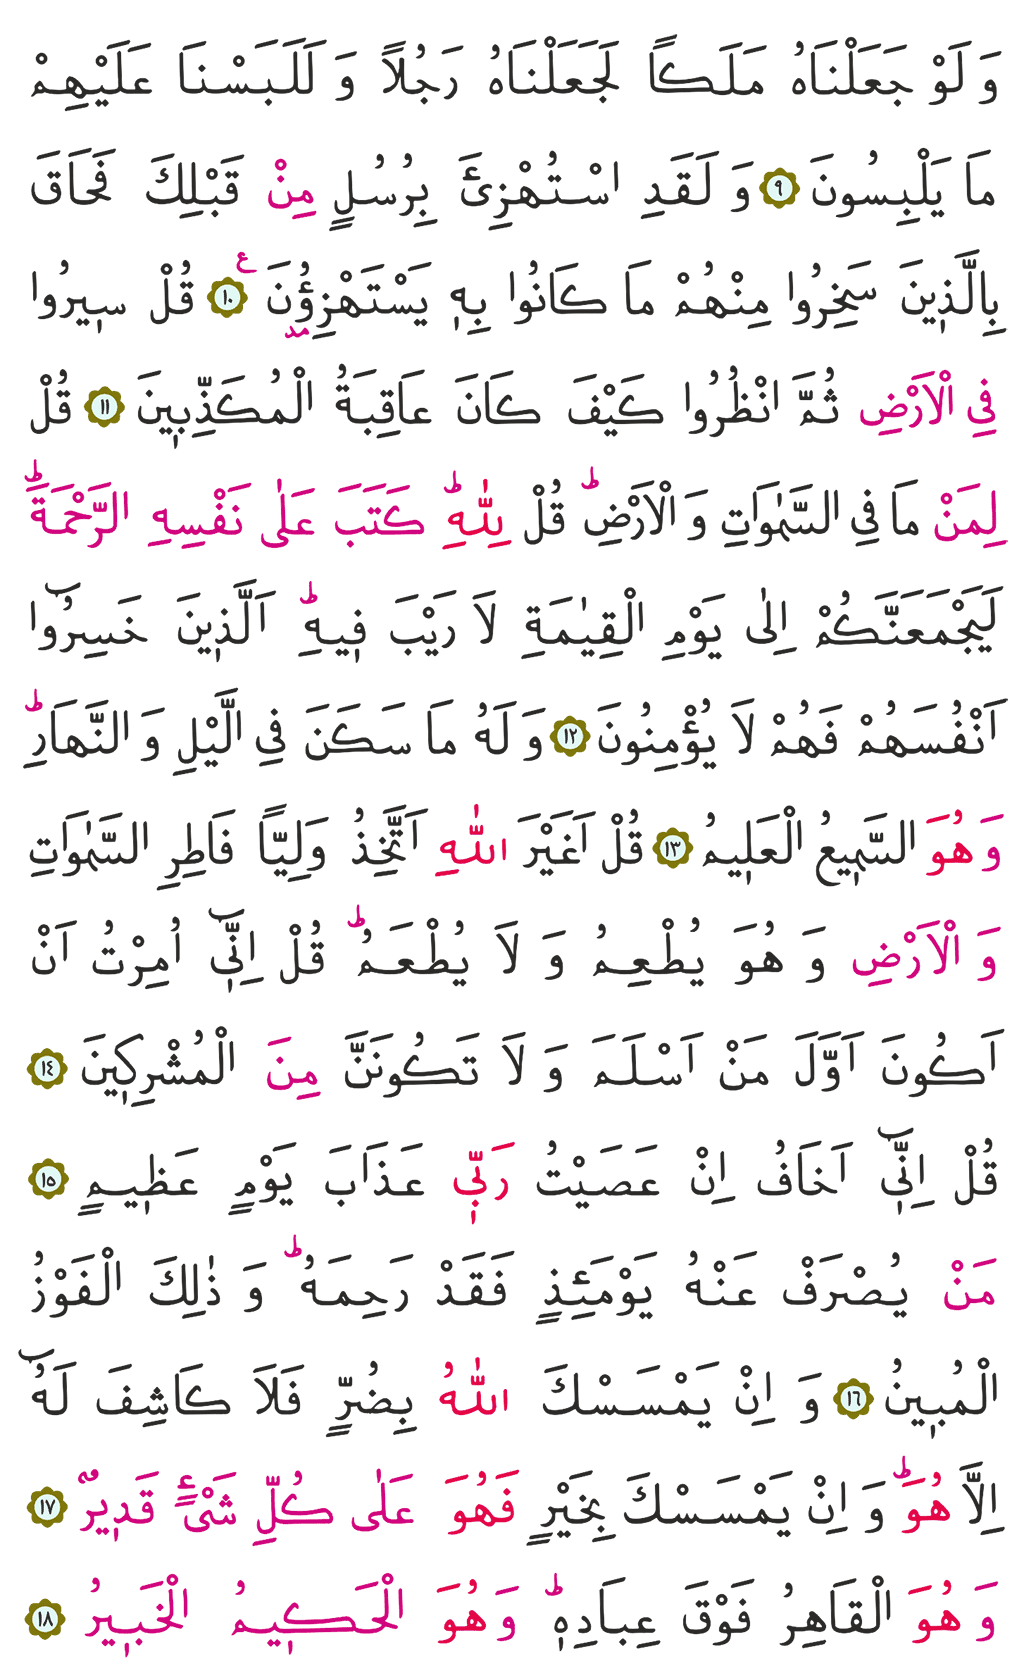 وَ لَوْ جَعَلْنَاهُ مَلَكاً لَجَعَلْنَاهُ رَجُلاً وَ لَلَبَسْنَا عَلَيْهِمْ
مَا يَلْبِسُونَ ﴿٩﴾ وَ لَقَدِ اسْتُهْزِئَ بِرُسُلٍ مِنْ قَبْلِكَ فَحَاقَ
بِالَّذ۪ينَ سَخِرُوا مِنْهُمْ مَا كَانُوا بِه۪ يَسْتَهْزِؤُ۫نَ ﴿١٠﴾ۧ قُلْ س۪يرُوا
فِي الْاَرْضِ ثُمَّ انْظُرُوا كَيْفَ كَانَ عَاقِبَةُ الْمُكَذِّب۪ينَ ﴿١١﴾ قُلْ
لِمَنْ مَا فِي السَّمٰوَاتِ وَ الْاَرْضِۜ قُلْ لِلّٰهِۜ كَتَبَ عَلٰى نَفْسِهِ الرَّحْمَةَۜ
لَيَجْمَعَنَّكُمْ اِلٰى يَوْمِ الْقِيٰمَةِ لَا رَيْبَ ف۪يهِۜ اَلَّذ۪ينَ خَسِرُٓوا
اَنْفُسَهُمْ فَهُمْ لَا يُؤْمِنُونَ ﴿١٢﴾ وَ لَهُ مَا سَكَنَ فِي الَّيْلِ وَ النَّهَارِۜ
وَ هُوَ السَّم۪يعُ الْعَل۪يمُ ﴿١٣﴾ قُلْ اَغَيْرَ اللّٰهِ اَتَّخِذُ وَلِيّاً فَاطِرِ السَّمٰوَاتِ
وَ الْاَرْضِ وَ هُوَ يُطْعِمُ وَ لَا يُطْعَمُۜ قُلْ اِنّ۪ٓي اُمِرْتُ اَنْ
اَكُونَ اَوَّلَ مَنْ اَسْلَمَ وَ لَا تَكُونَنَّ مِنَ الْمُشْرِك۪ينَ ﴿١٤﴾
قُلْ اِنّ۪ٓي اَخَافُ اِنْ عَصَيْتُ رَبّ۪ي عَذَابَ يَوْمٍ عَظ۪يمٍ ﴿١٥﴾
مَنْ يُصْرَفْ عَنْهُ يَوْمَئِذٍ فَقَدْ رَحِمَهُۜ وَ ذٰلِكَ الْفَوْزُ
الْمُب۪ينُ ﴿١٦﴾ وَ اِنْ يَمْسَسْكَ اللّٰهُ بِضُرٍّ فَلَا كَاشِفَ لَهُٓ
اِلَّا هُوَۜ وَ اِنْ يَمْسَسْكَ بِخَيْرٍ فَهُوَ عَلٰى كُلِّ شَيْءٍ قَد۪يرٌ ﴿١٧﴾
وَ هُوَ الْقَاهِرُ فَوْقَ عِبَادِه۪ۜ وَ هُوَ الْحَك۪يمُ الْخَب۪يرُ ﴿١٨﴾